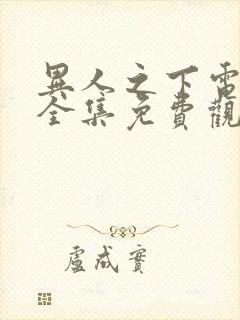 異人之下電
全集免費觀
盧成實